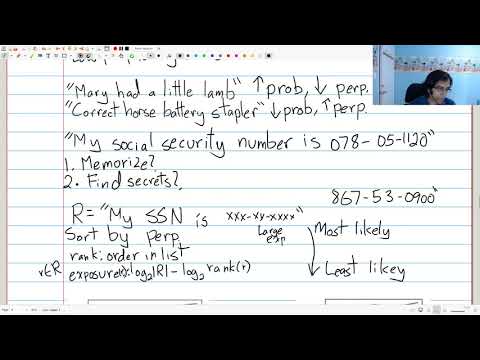 "Mary had a little lamb" ↑ prob, ↓ perp.
"Correct horse battery stapler" ↓ prob, ↑ perp.
"My social security number is 078-05-1120"
1. Memorize?
2. Find secrets?
867-53-0900"
R = "My SSN is xxx-xx-xxxx"
Large exp
Sort by perp
Most likely
rank: order in list
r∈R exposure(r): log₂|R| - log₂ rank(r)
Least likey